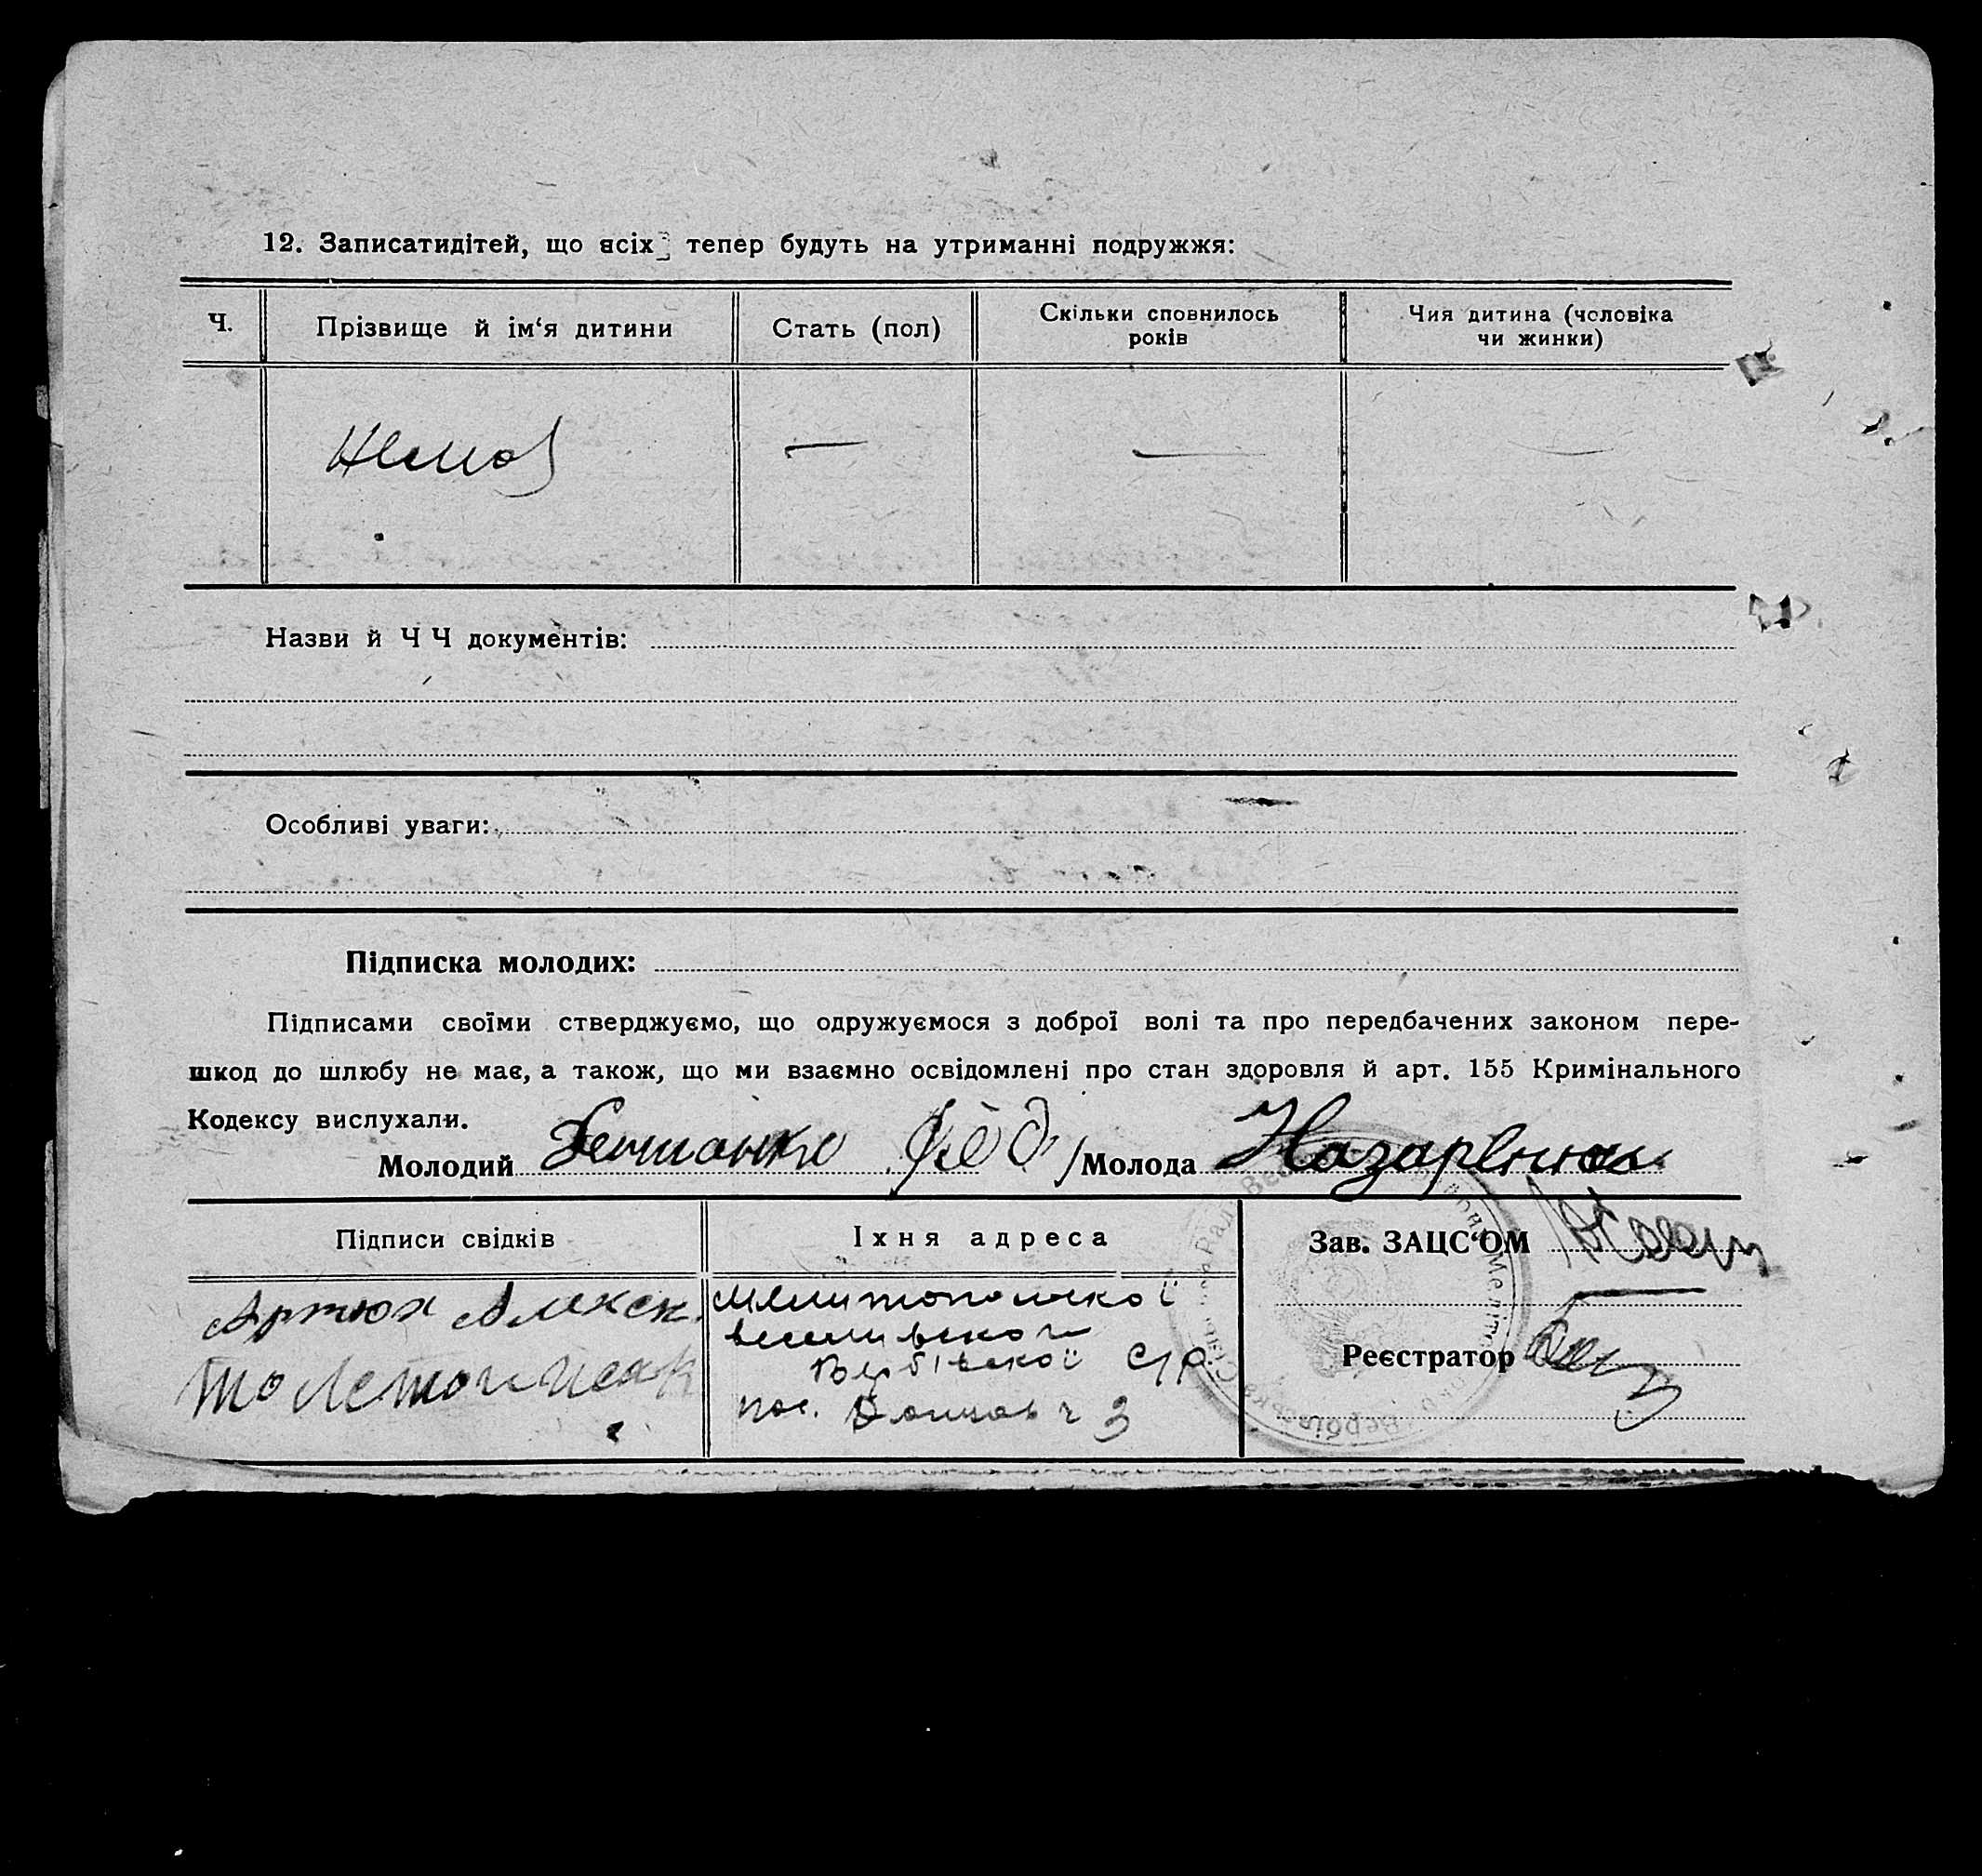 12. Записатидітей, що всіх тепер будуть на утриманні подружжя:
Ч.
Прізвище й ім‘я дитини
Стать (пол)
Скільки сповнилось
років
Чия дитина (чоловіка
чи жинки)
— — —
Назви й Ч Ч документів:
Особливі уваги:
Підписка молодих:
Підписами своїми стверджуємо, що одружуємося з доброї волі та про передбачених законом пере-
шкод до шлюбу не має, а також, що ми взаємно освідомлені про стан здоровля й арт. 155 Кримінального
Кодексу вислухали.
Молодий Фед Молода
Підписи свідків
Їхня адреса
Зав. ЗАЦС‘ОМ
Артюх Алекс
Мелитопольскої
Вербівської С/р
Реєстратор
пос. 3